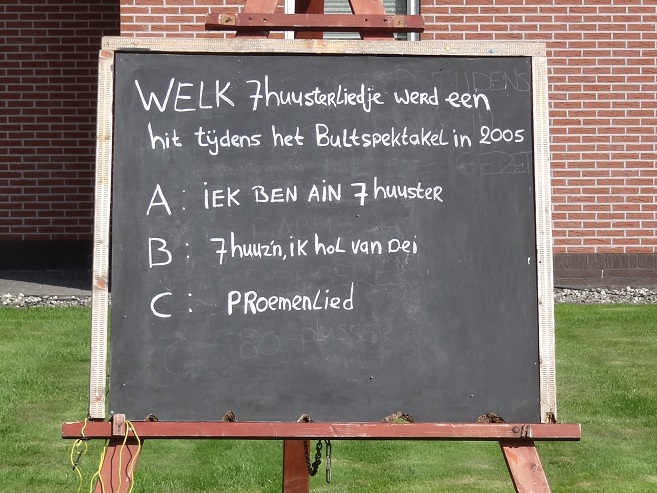 WELK 7huusterliedje werd een
hit tijdens het Bultspektakel in 2005
A: iEK BEN AiN 7huuster
B: 7huuz'n, ik hol van Dei
C: PRoemenlied